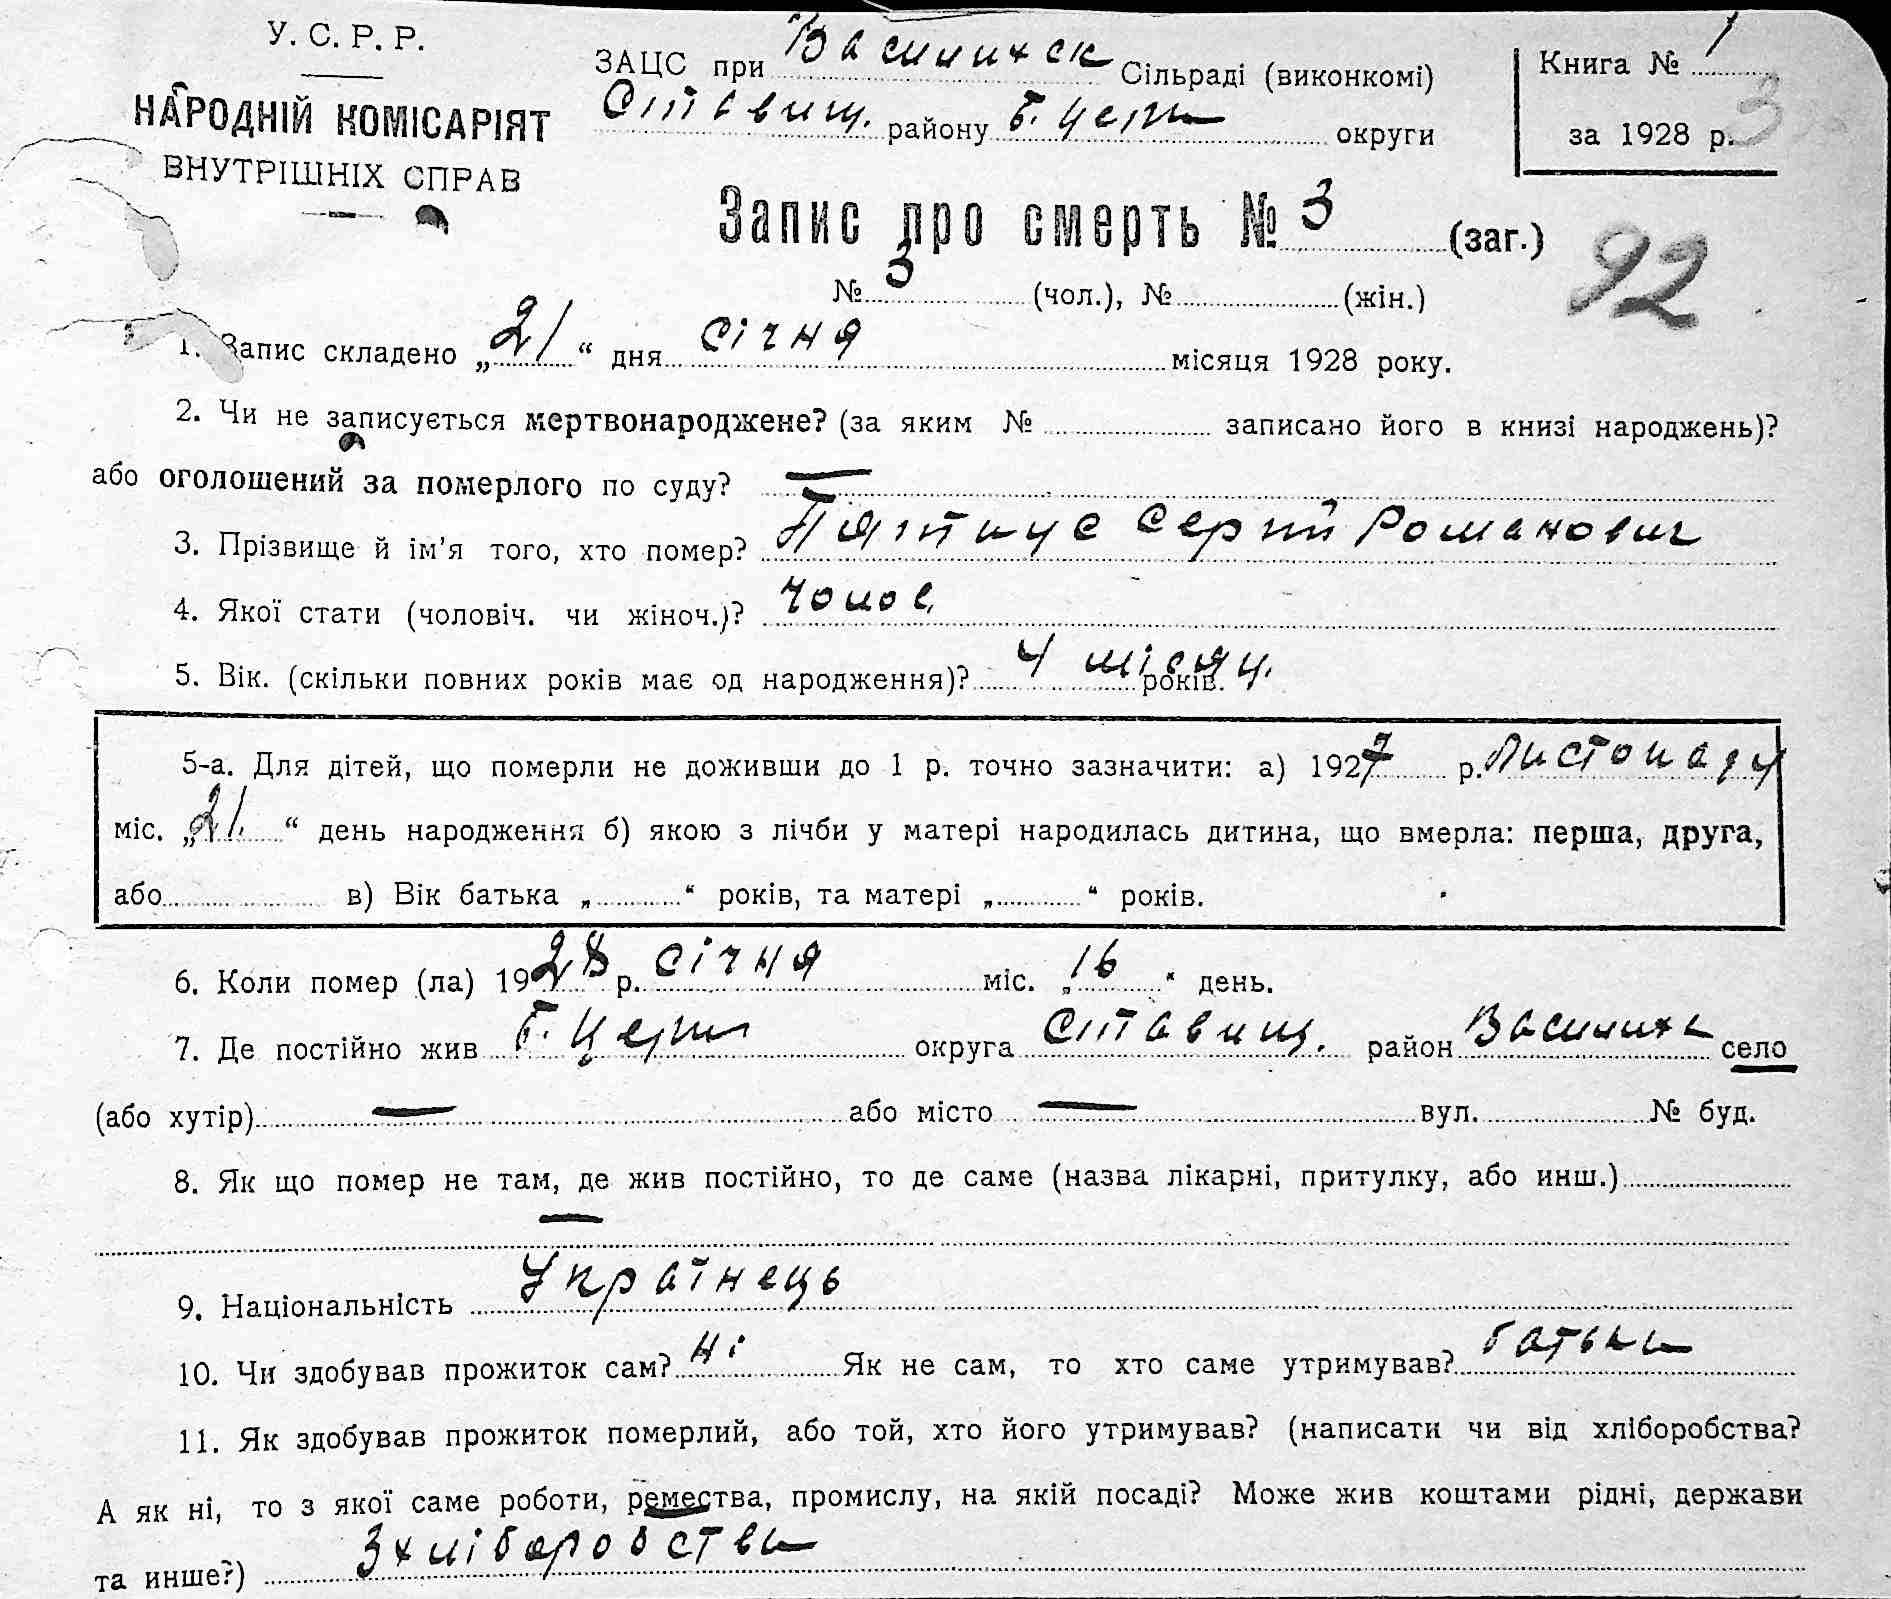 У. С. Р. Р.
НАРОДНІЙ КОМІСАРІЯТ
ВНУТРІШНІХ СПРАВ
ЗАЦС при Василихск Сільраді (виконкомі)
Ставищ. району Б. Церк округи
Книга № 1
за 1928 р.
3
Запис про смерть № 3 (заг.)
92
№ 3 (чол.), № (жін.)
1. Запис складено „21“ дня січня місяця 1928 року.
2. Чи не записується мертвонароджене? (за яким № записано його в книзі народжень)?
або оголошений за померлого по суду? —
3. Прізвище й ім’я того, хто помер? Сергій Романович
4. Якої стати (чоловіч. чи жіноч.)? чолов.
5. Вік. (скільки повних років має од народження)? 4 місяц. років.
5-а. Для дітей, що померли не доживши до 1 р. точно зазначити: а) 1927 р. Листопаду
міс. „21.“ день народження б) якою з лічби у матері народилась дитина, що вмерла: перша, друга,
або в) Вік батька „ “ років, та матері „ “ років.
6. Коли помер (ла) 1928 р. січня міс. „16“ день.
7. Де постійно жив Б. Церк округа Ставищ. район Василиха село
(або хутір) — або місто — вул. № буд.
8. Як що помер не там, де жив постійно, то де саме (назва лікарні, притулку, або инш.)
—
9. Національність Українець
10. Чи здобував прожиток сам? ні Як не сам, то хто саме утримував? батьки
11. Як здобував прожиток померлий, або той, хто його утримував? (написати чи від хліборобства?
А як ні, то з якої саме роботи, ремества, промислу, на якій посаді? Може жив коштами рідні, держави
та инше?) З хліборобства